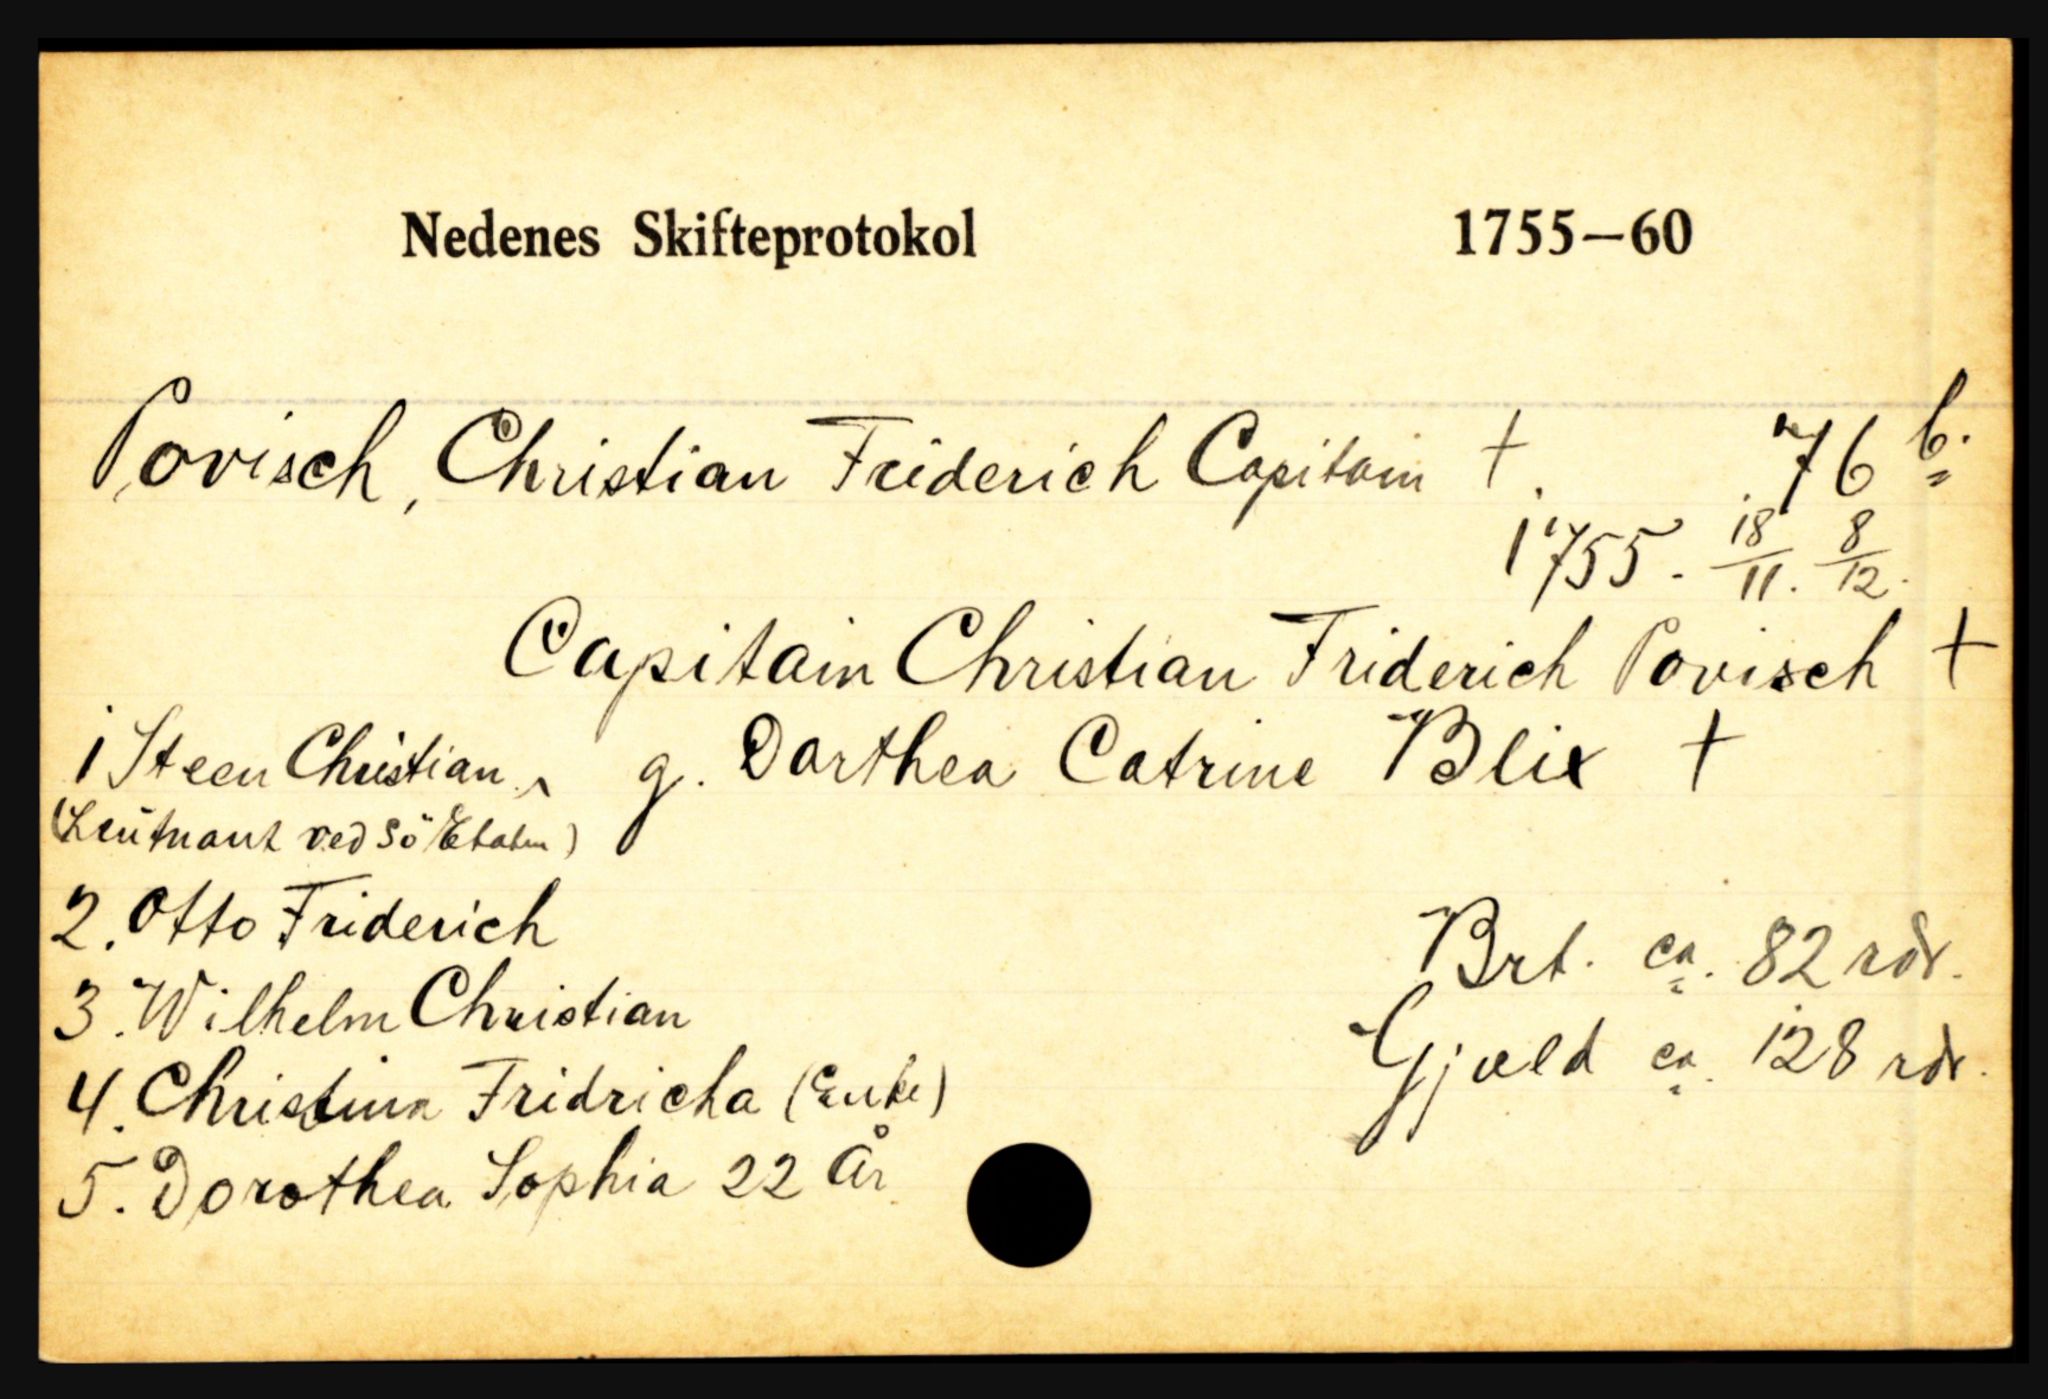 Nedenes Skifteprotokol 1755–60
Povisch, Christian Friderich Capitain † 76 b.
1755. 18/11. 8/12.
Capitain Christian Friderich Povisch †
g. Dorthea Catrine Blix †
1 Steen Christian
(Leutnant ved Sö Etaten)
2. Otto Friderich
3. Wilhelm Christian
4. Christina Fridricha (Enke)
5. Dorothea Sophia 22 År
Brt. ca. 82 rdr.
Gjæld ca. 128 rdr.